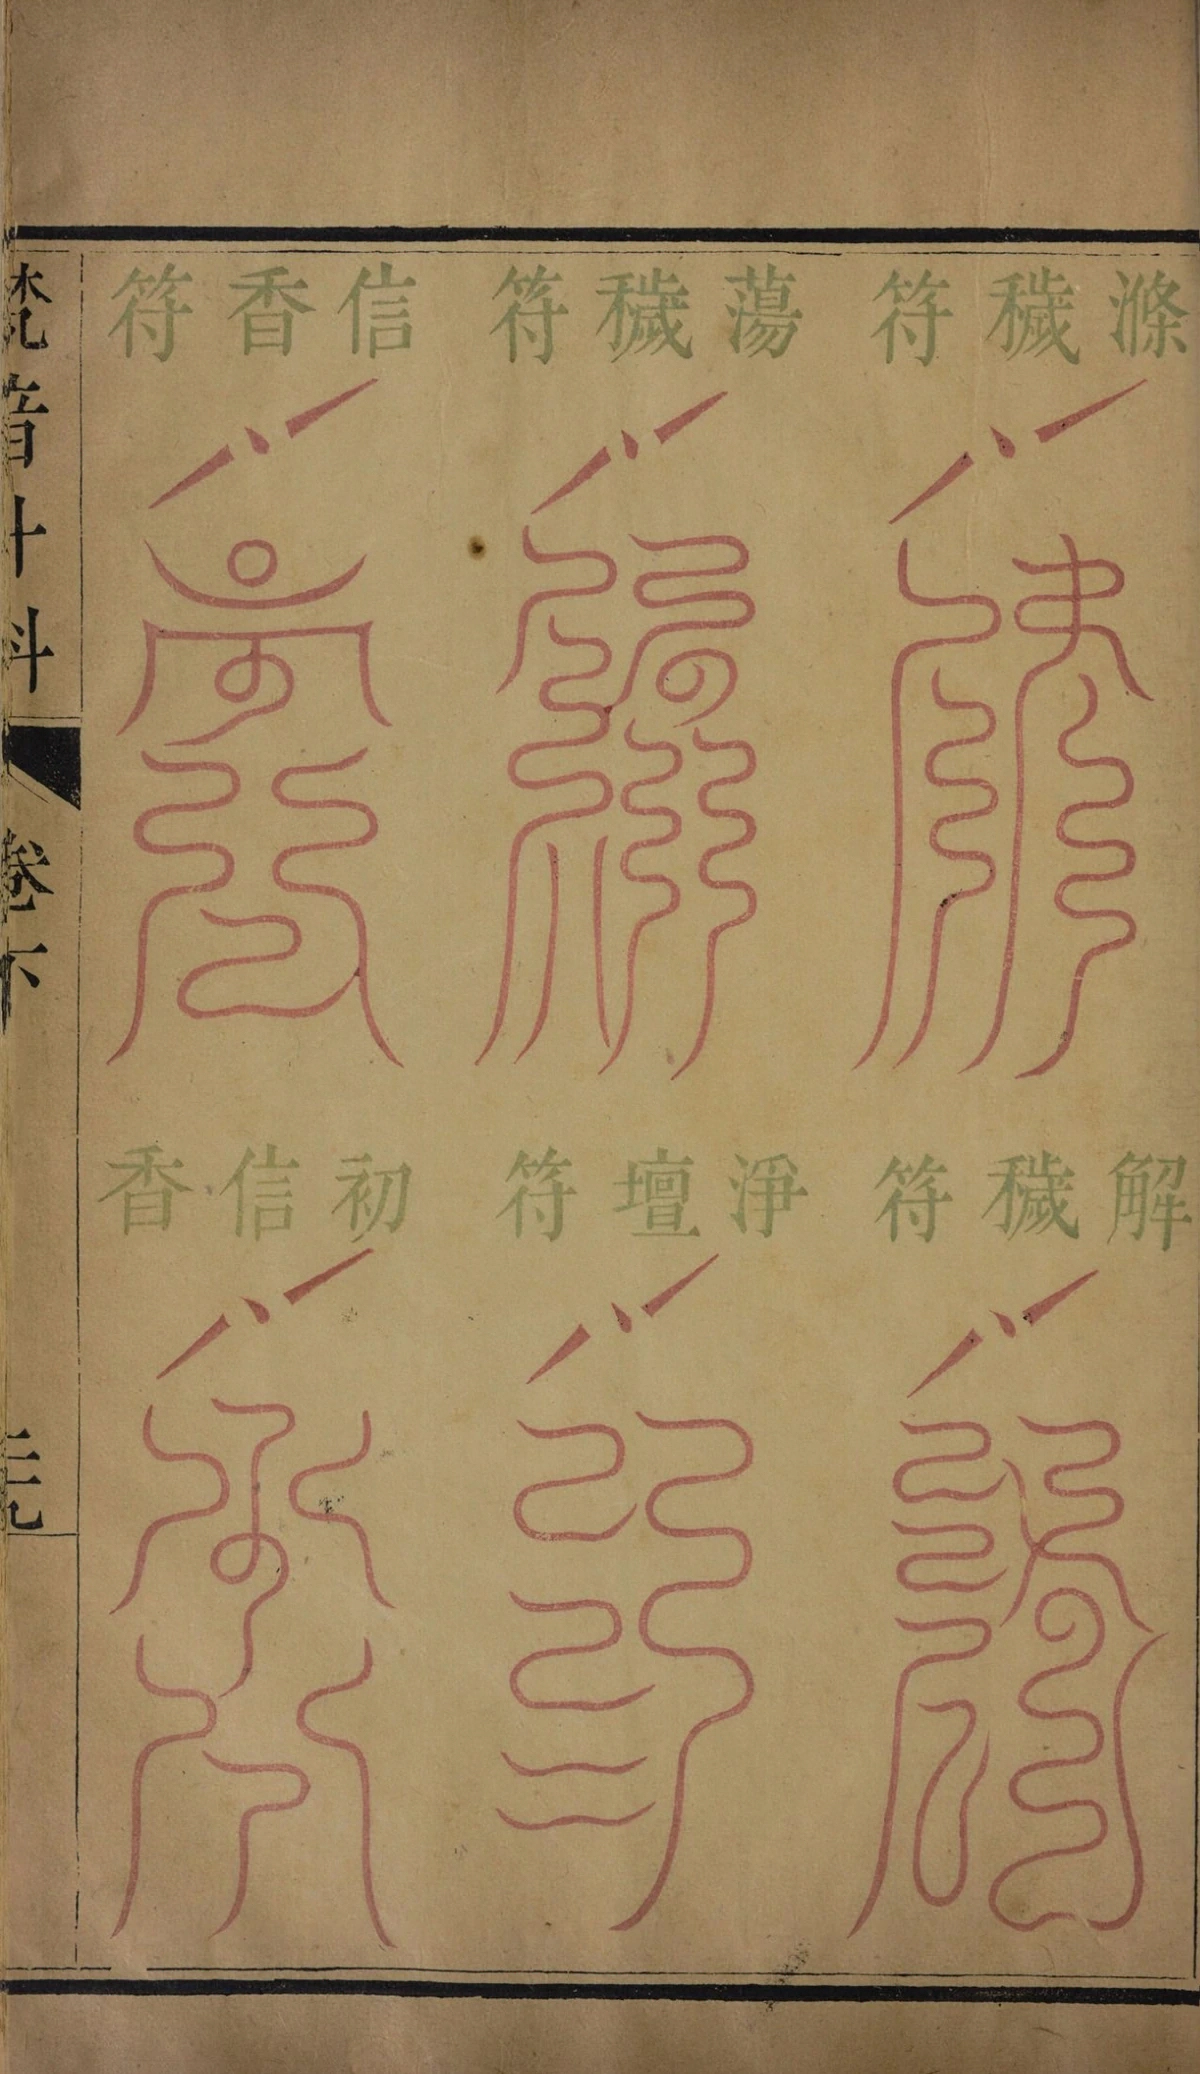 滌穢符
蕩穢符
信香符
解穢符
淨壇符
初信香
梵音斗科
卷下
三九